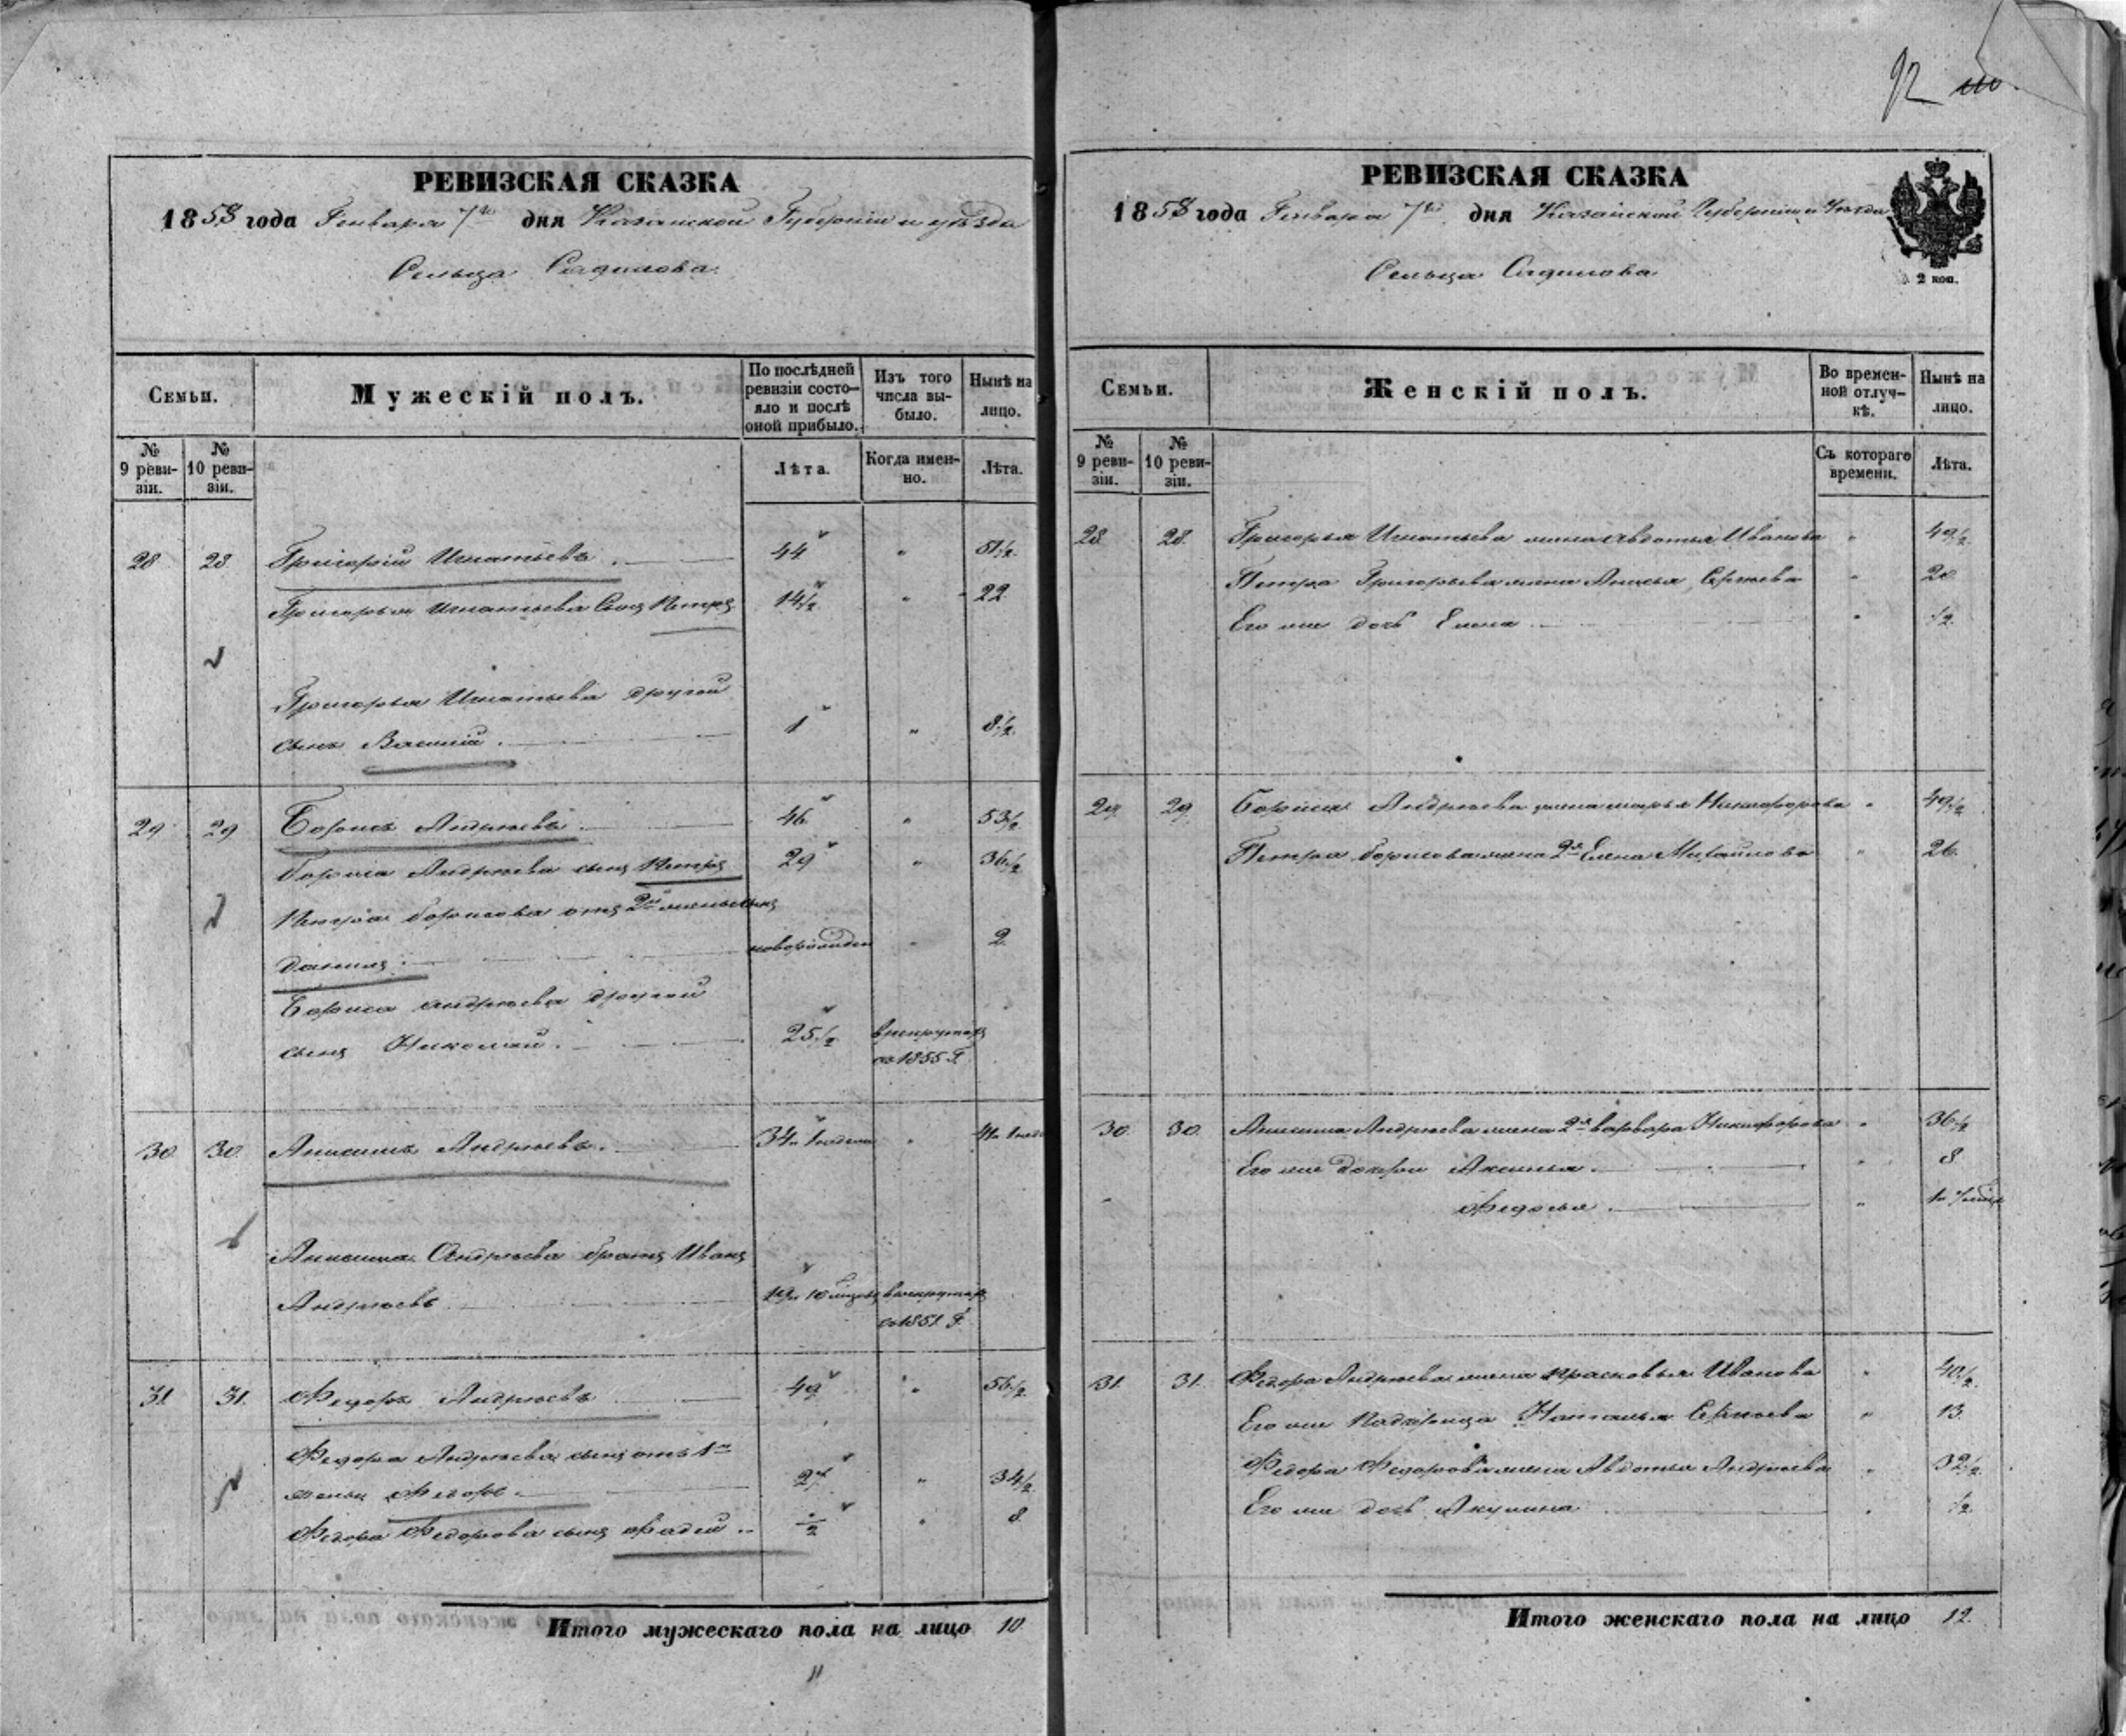 92
РЕВИЗСКАЯ СКАЗКА
1858 года Генваря 7го дня Казанской Губернiи и уѣзда
Сельца Садилова
Семьи.
Мужескiй полъ.
По послѣдней ревизiи состо-
яло и послѣ
оной прибыло.
Изъ того
числа вы-
было.
Нынѣ на
лицо.
№
9 реви-
зiи.
№
10 реви-
зiи.
Лѣта.
Когда имен-
но.
Лѣта.
28 28 Григорiй Игнатьевъ. 44 " 51½
Григорья Игнатьева сынъ Петръ 14½ " 22
Григорья Игнатьева другой
сынъ Василiй. 1 " 8½
29 29 Борисъ Андреевъ. 46 " 53½
Бориса Андреева сынъ Петръ 29 " 36½
Петра Борисова отъ 2й жены сынъ
Данила. новорожден " 2
Бориса Андреева другой
сынъ Николай. 25½ в рекрутахъ
съ 1855 г.
30 30 Анисимъ Андреевъ. 34 "
Анисима Андреева братъ Иванъ
Андреевъ 19 в рекрутахъ
съ 1851 г.
31 31 Федоръ Андреевъ 49 " 56½
Федора Андреева сынъ отъ 1й
жены Федоръ. 27 " 34½
Федора Федорова сынъ Фадей ½ " 8
Итого мужескаго пола на лицо 10
11
РЕВИЗСКАЯ СКАЗКА
1858 года Генваря 7го дня Казанской Губернiи и Уѣзда
Сельца Садилова
2 коп.
Семьи.
Женскiй полъ.
Во времен-
ной отлуч-
кѣ.
Нынѣ на
лицо.
№
9 реви-
зiи.
№
10 реви-
зiи.
Съ котораго
времени.
Лѣта.
28 28 Григорья Игнатьева жена Авдотья Иванова " 49½
Петра Григорьева жена Анисья Сергѣева " 20
Его же дочь Елена " ½
29 29 Бориса Андреева жена Марья Никифорова " 49½
Петра Борисова жена 2я Елена Михайлова " 26
30 30 Анисима Андреева жена 2я Варвара Никифорова " 36½
Его же дочери Аксинья " 8
Федосья "
31 31 Федора Андреева жена Прасковья Иванова " 40½
Его же Падчерица Наталья Сергѣева " 13
Федора Федорова жена Авдотья Андреева " 32½
Его же дочь Акулина " ½
Итого женскаго пола на лицо 12.